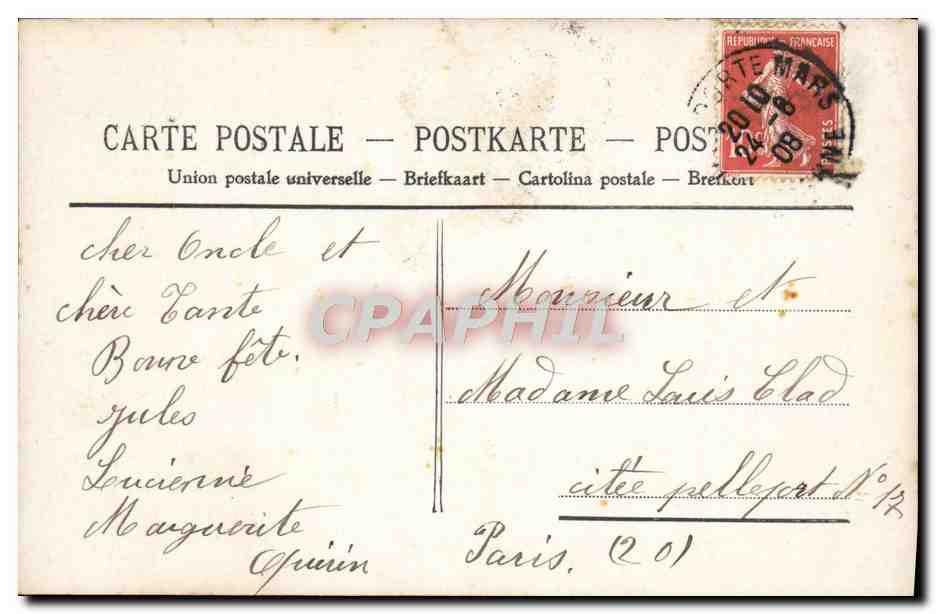 REPUBLIQUE FRANÇAISE
PORTE MARS
20 10
24 -8
08
10c
POSTES
CARTE POSTALE — POSTKARTE — POST
Union postale universelle — Briefkaart — Cartolina postale — Brefkort
cher Oncle et
chère Tante
Bonne fête.
Jules
Lucienne
Marguerite
Quirin
Monsieur et
Madame Louis Clad
citée pelleport N° 17
Paris. (20)
CPAPHIL